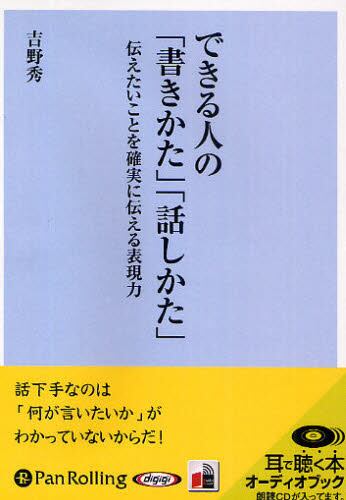 できる人の
「書きかた」「話しかた」
伝えたいことを確実に伝える表現力
吉野秀
話下手なのは
「何が言いたいか」が
わかっていないからだ!
PanRolling
digigi
耳で聴く本
オーディオブック
朗読CDが入ってます。